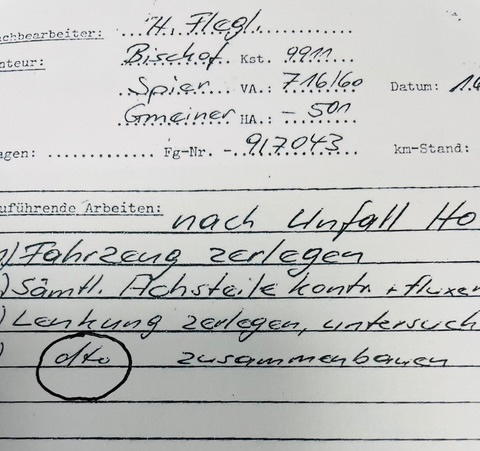 achbearbeiter: H. Flegl.
nteur: Bischof Kst. 9911
Spier VA.: 716/60 Datum: 1.
Gmeiner HA.: - 501
agen: ........... Fg-Nr. - 917043 km-Stand:
uführende Arbeiten: nach Unfall Ho
) Fahrzeug zerlegen
) Sämtl. Achsteile kontr. + fluxen
) Lenkung zerlegen, untersuch
) dto zusammenbauen